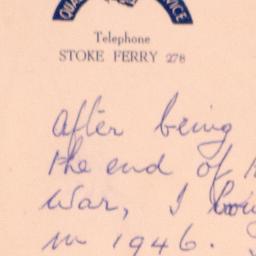 QUA SERVICE
Telephone
STOKE FERRY 278
After being
the end of
War, I
in 1946.